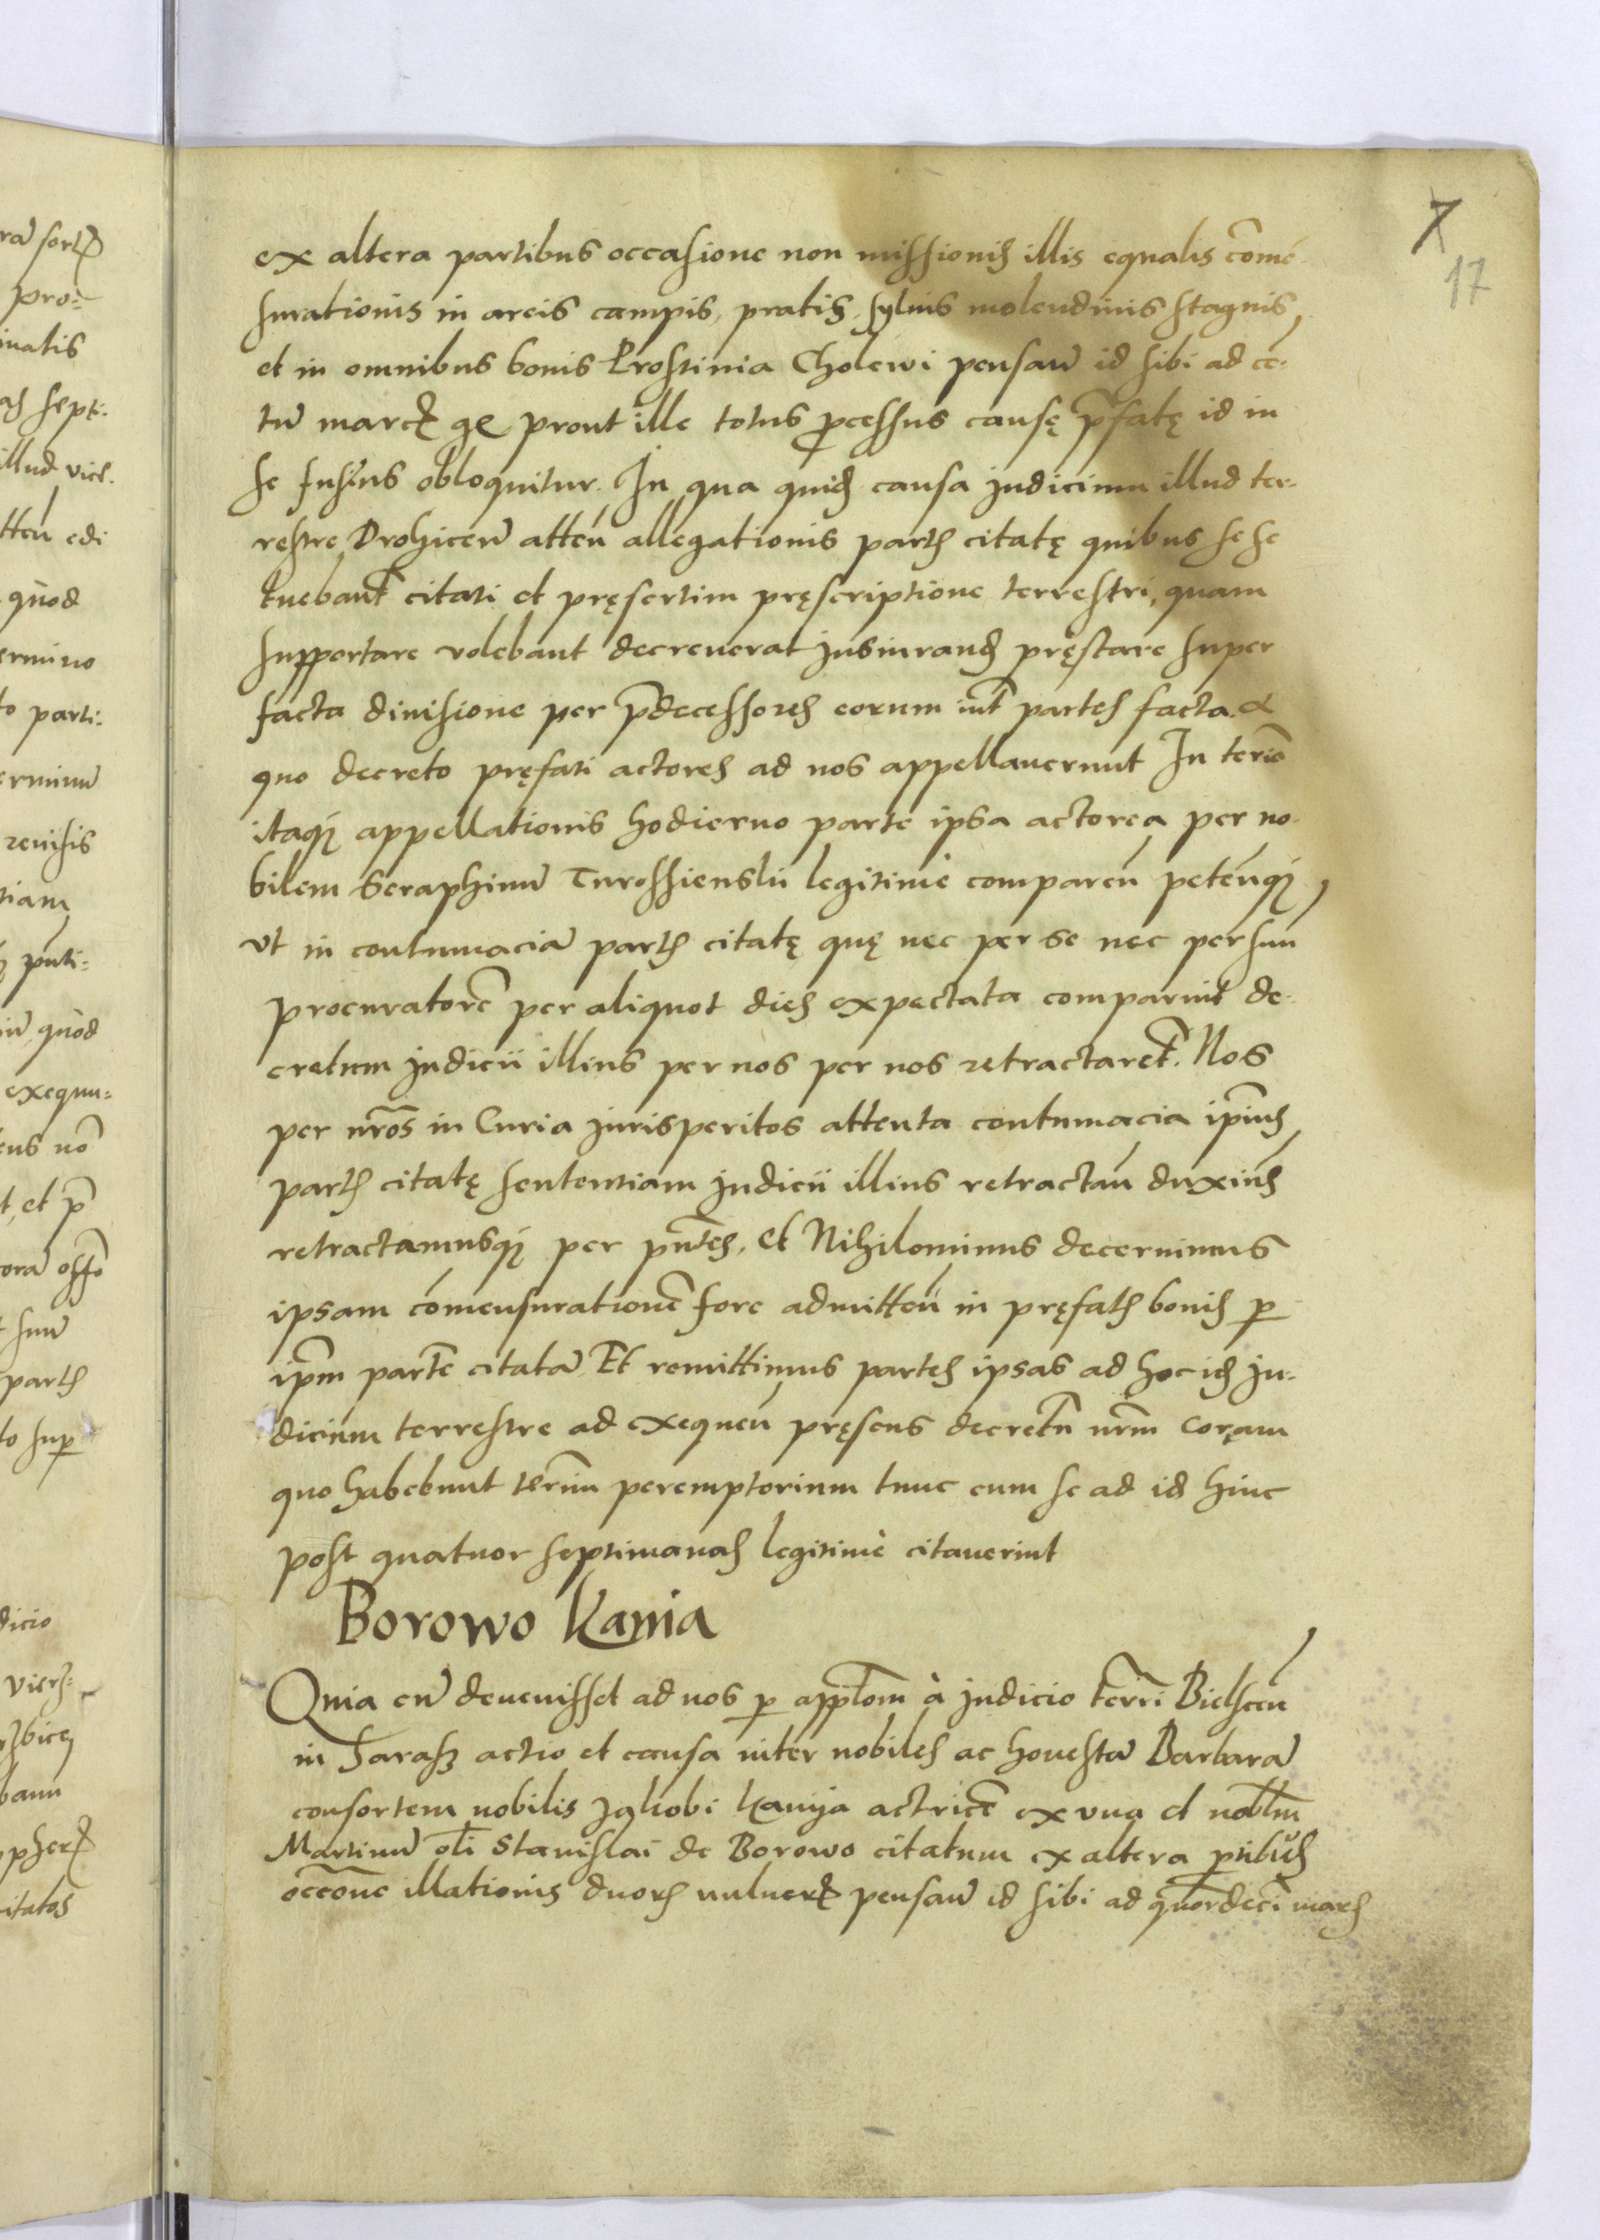 ex altera partibus occasione non missionis illis equalis com̄e-
surationis in areis campis, pratis, sylvis molendinis stagnis
et in omnibus bonis Prostinia Cholewi pensan̄ id sibi ad cē-
tū marcꝝ prout ille totus ꝓcessus causę p̄fatę id in
se fusius obloquitur. In qua quid̄ causa judicium illud ter-
restre Drohicen̄ atten̄ allegationis partis citatę quibus se se
tuebant̄ citati et pręsertim pręscriptione terrestri, quam
supportare volebant decreverat jusiurand̄ pręstare super
facta divisione per p̄decessores eorum int̄ partes facta. A
quo decreto pręfati actores ad nos appellaverunt In terīo
itaqꝫ appellationis hodierno parte ipsa actorea per no-
bilem Seraphinū Turossienskii legitimè comparen̄ peten̄qꝫ
vt in contumaciā partis citatę quę nec per se nec per suū
procuratorē per aliquot dies expectata comparuit de-
cretum judicii illius per nos per nos retractaret̄. Nos
per nr̄os in Curia jurisperitos attenta contumacia ip̄ius
partis citatę sententiam judicii illius retractan̄ duxim̄s
retractamusqꝫ per pn̄tes. Et Nihilominus decernimus
ipsam com̄ensurationē fore admitten̄ in pręfatis bonis ꝑ
ip̄m partē citatā Et remittimus partes ipsas ad hoc id̄ ju-
dicium terrestre ad exequen̄ pręsens decretū nr̄m coram
quo habebunt term̄ peremptorium tunc cum se ad id hinc
post quatuor septimanas legitimè citaverint
Borowo Kania
Quia cū devenisset ad nos ꝑ app̄lom à judicio terr̄i Bielscen̄
in Sarasz actio et causa inter nobiles ac honestā Barbarā
consortem nobilis Jakobi Kanija actricē ex vna et nob̄lm
Martinū oli Stanislai de Borowo citatum ex altera ꝑtibus
occ̄one illationis duorꝝ vulnerꝝ pensan̄ id sibi ad quordecī marcꝭ
7
17